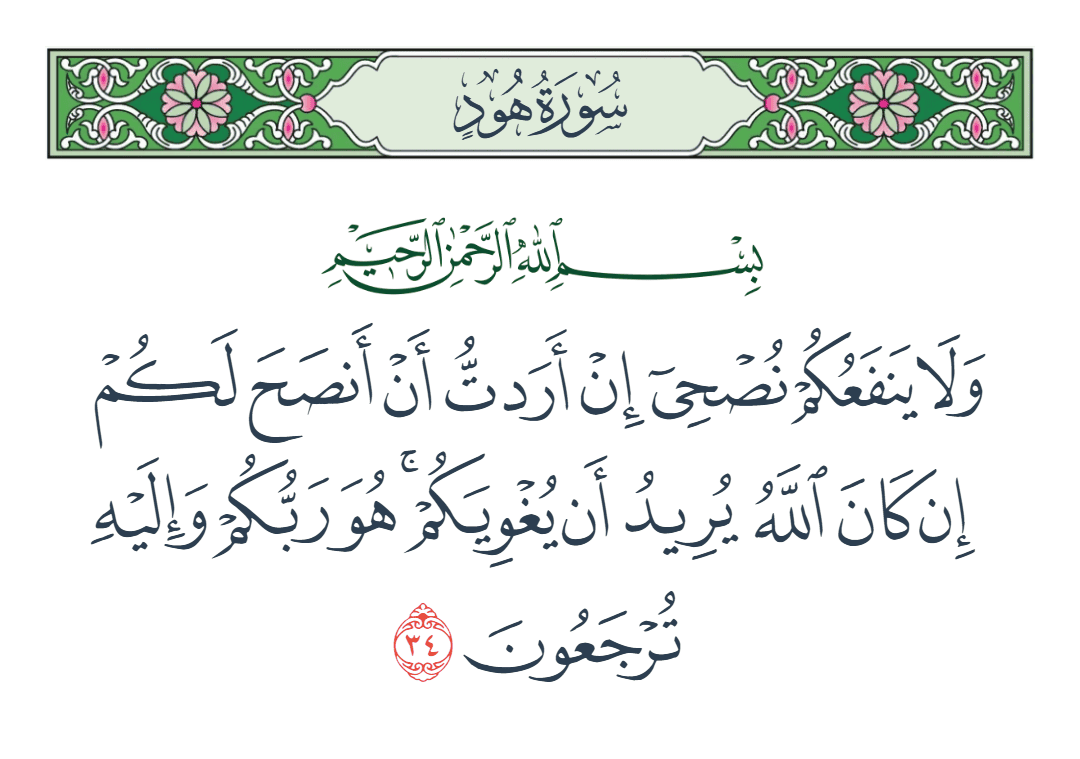 سُورَةُ هُودٍ
بِسْمِ ٱللَّهِ ٱلرَّحْمَٰنِ ٱلرَّحِيمِ
وَلَا يَنفَعُكُمْ نُصْحِىٓ إِنْ أَرَدتُّ أَنْ أَنصَحَ لَكُمْ
إِن كَانَ ٱللَّهُ يُرِيدُ أَن يُغْوِيَكُمْ ۚ هُوَ رَبُّكُمْ وَإِلَيْهِ
تُرْجَعُونَ ٣٤